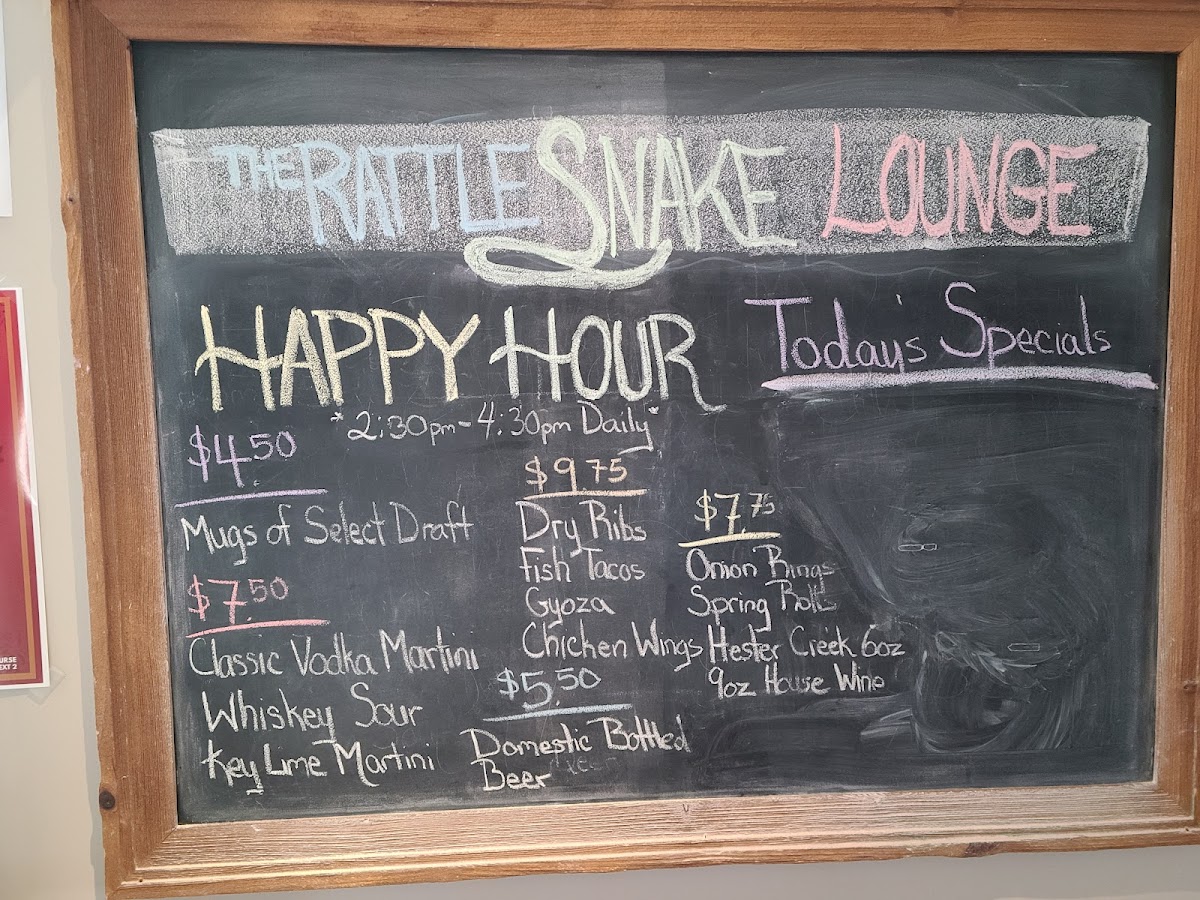 THE RATTLE SNAKE LOUNGE
HAPPY HOUR
*2:30pm-4:30pm Daily*
$4.50
Mugs of Select Draft
$7.50
Classic Vodka Martini
Whiskey Sour
Key Lime Martini
$9.75
Dry Ribs
Fish Tacos
Gyoza
Chicken Wings
$5.50
Domestic Bottled
Beer
$7.75
Onion Rings
Spring Rolls
Hester Creek 6oz
9oz House Wine
Today's Specials